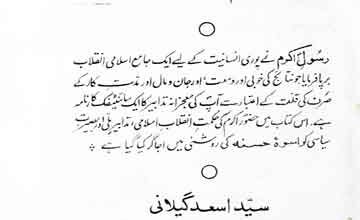 رسولِ اکرم نے پوری انسانیت کے لیے ایک جامع اسلامی انقلاب
برپا فرمایا جو نتائج کی خوبی اور وسعت، اور جان و مال اور مدت کار کے
صرف کی قلت کے اعتبار سے آپ کی معجزانہ تدابیر کا ایک سائنٹیفک کارنامہ
ہے۔ اس کتاب میں حضورِ اکرم کی حکمت انقلابِ اسلامی، تدابیر ملی اور بصیرت
سیاسی کو اسوۂ حسنہ کی روشنی میں اجاگر کیا گیا ہے
سید اسعد گیلانی